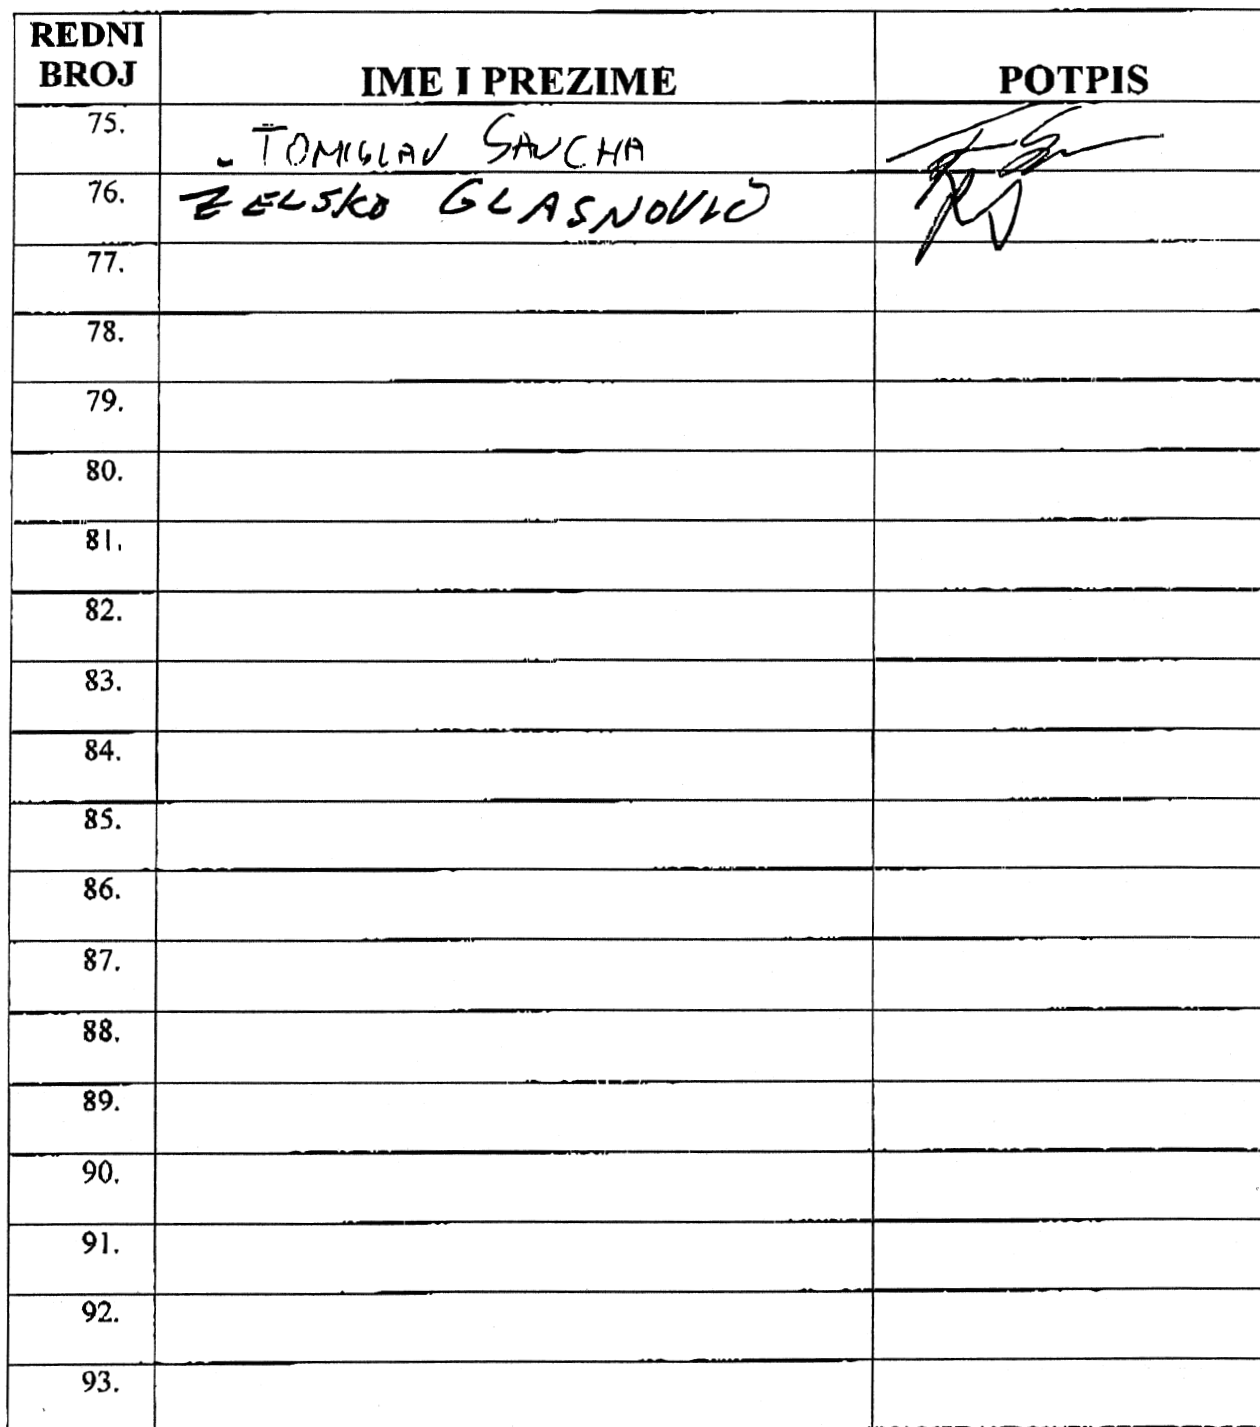 REDNI BROJ IME I PREZIME POTPIS
75. TOMISLAV SAUCHA
76. ŽELJKO GLASNOVIĆ
77.
78.
79.
80.
81.
82.
83.
84.
85.
86.
87.
88.
89.
90.
91.
92.
93.